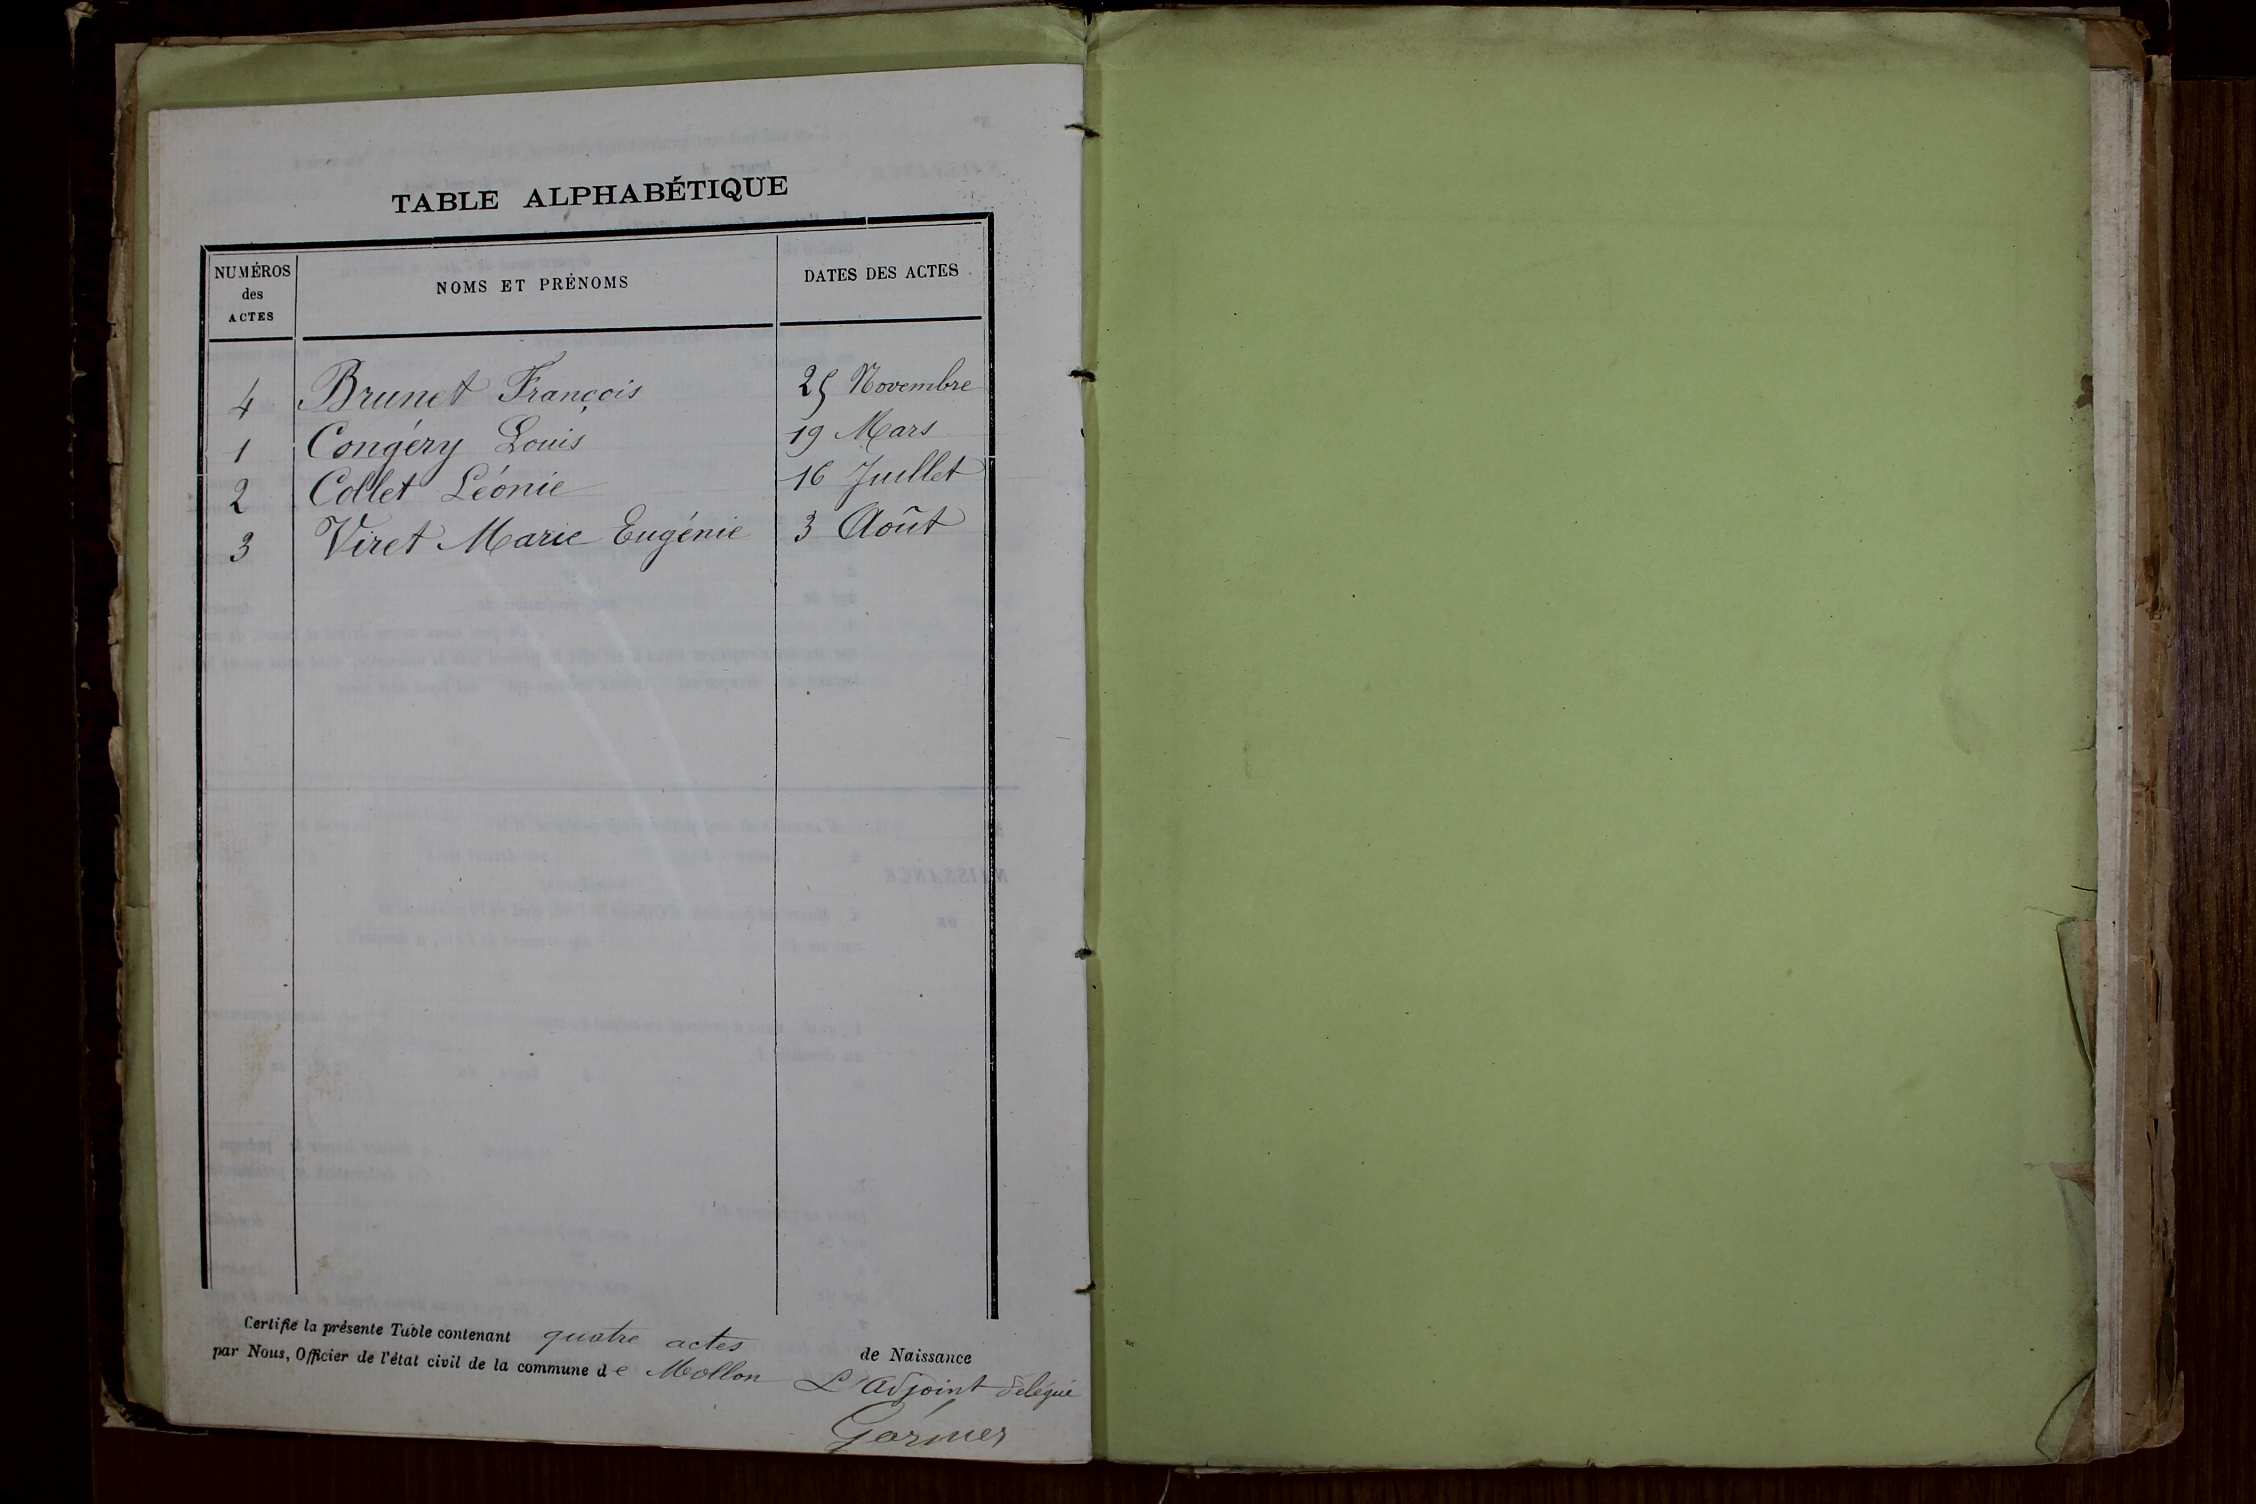 TABLE ALPHABÉTIQUE
NUMÉROS
des
ACTES
NOMS ET PRÉNOMS
DATES DES ACTES
4 Brunet François 25 Novembre
1 Congéry Louis 19 Mars
2 Collet Léonie 16 Juillet
3 Viret Marie Eugénie 3 Août
Certifie la présente Table contenant quatre actes de Naissance
par Nous, Officier de l'état civil de la commune de Mollon L'adjoint délégué